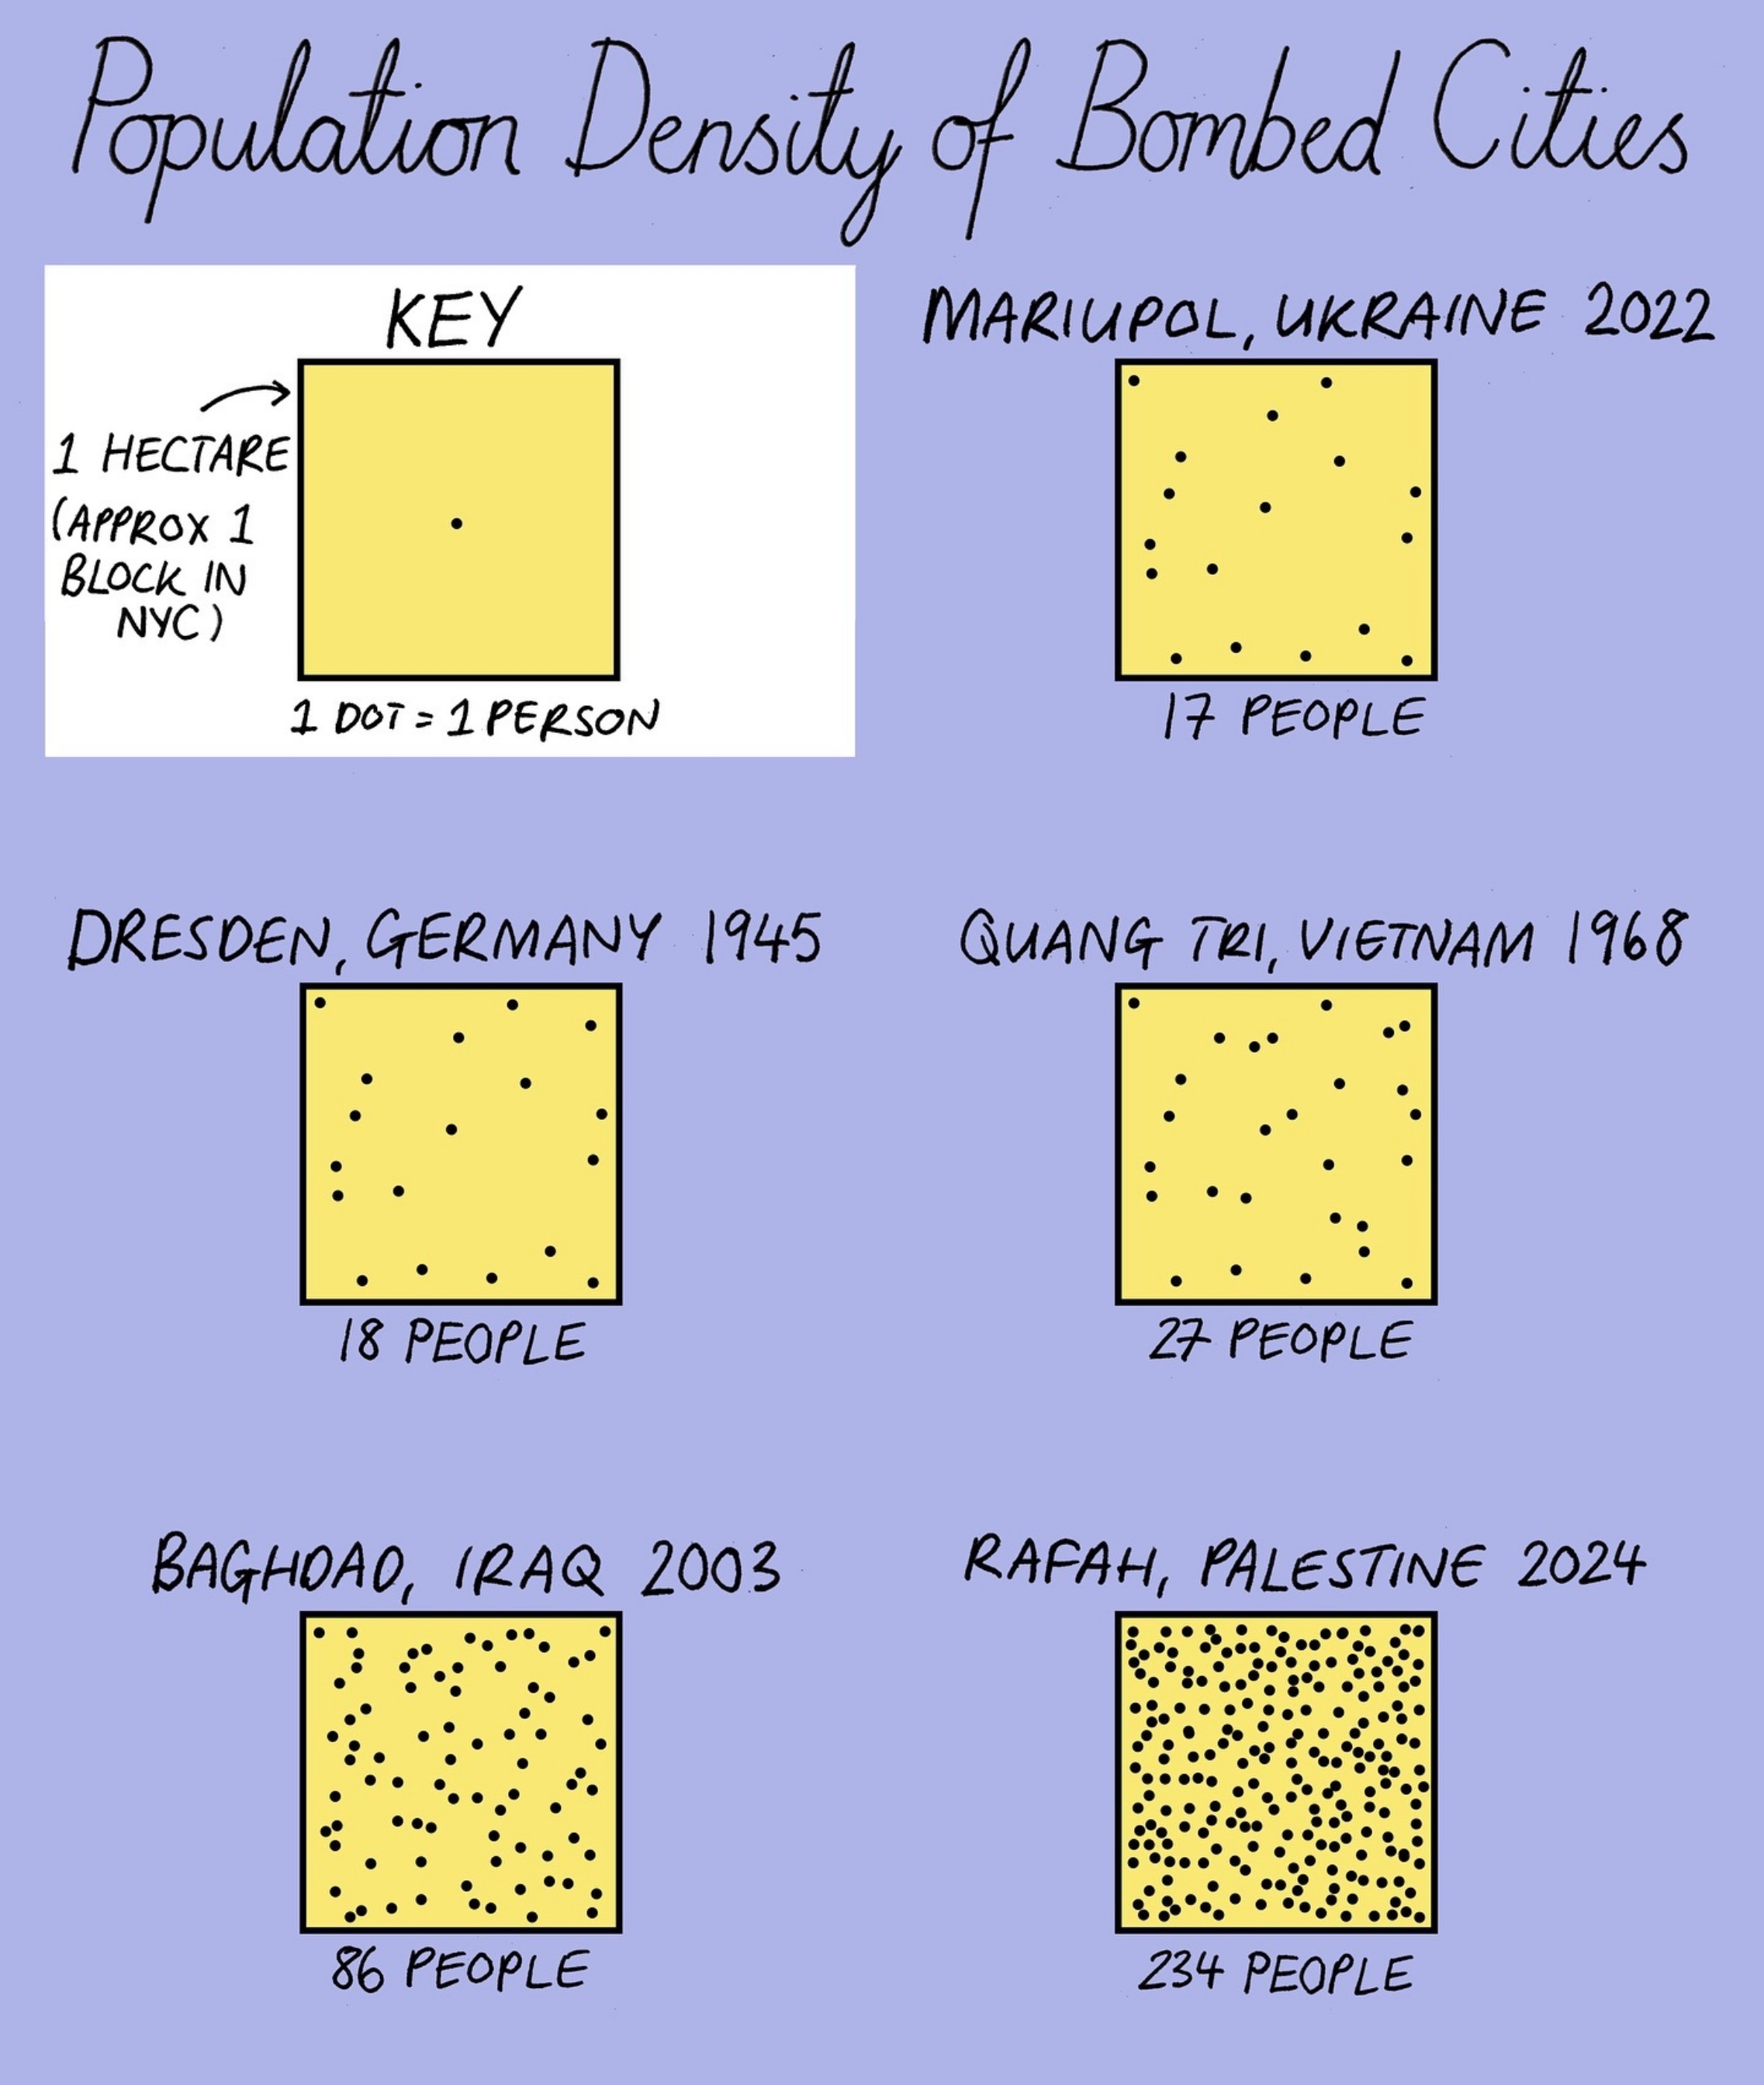 Population Density of Bombed Cities
KEY
1 HECTARE
(APPROX 1
BLOCK IN
NYC)
1 DOT = 1 PERSON
MARIUPOL, UKRAINE 2022
17 PEOPLE
DRESDEN, GERMANY 1945
18 PEOPLE
QUANG TRI, VIETNAM 1968
27 PEOPLE
BAGHDAD, IRAQ 2003
86 PEOPLE
RAFAH, PALESTINE 2024
234 PEOPLE